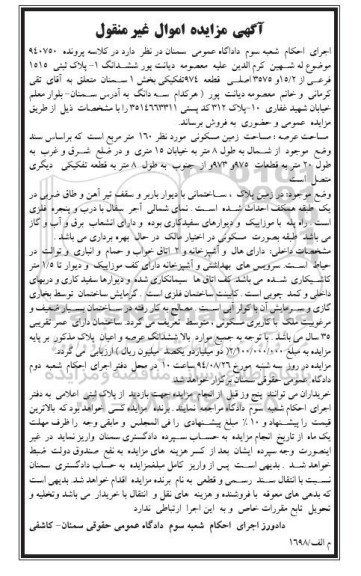 آگهی مزایده اموال غیر منقول
اجرای احکام شعبه سوم دادگاه عمومی سمنان در نظر دارد در کلاسه پرونده ۹۴۰۷۵۰
موضوع له شهین کرم الدین علیه معصومه دیانت پور ششدانگ ۱- پلاک ثبتی ۱۵۱۵
فرعی از ۱۵/۲و ۳۵۷۵ اصلی قطعه ۹۷۴تفکیکی بخش ۱ سمنان متعلق به آقای تقی
کرمانی و خانم معصومه دیانت پور ( هرکدام سه دانگ به آدرس سمنان- بلوار معلم
خیابان شهید غفاری ۱۰-پلاک ۳۱۲ کد پستی ۳۵۱۴۶۶۳۳۱۱ را با مشخصات ذیل از طریق
مزایده عمومی و حضوری به فروش برساند.
مساحت عرصه : مساحت زمین مسکونی مورد نظر ۱۶۰ متر مربع است که براساس سند
وضع موجود از شمال به طول ۸ متر به خیابان ۱۵ متری و در ضلع شرق و غرب به
طول ۲۰ متر به قطعات ۹۷۵و ۹۷۳و از جنوب به طول ۸ متر به قطعه تفکیکی دیگری
متصل است
وضع موجود: در زمین پلاک ، ساختمانی با دیوار باربر و سقف تیر آهن و طاق ضربی در
یک طبقه همکف احداث شده است . نمای شمالی آجر سفال با درب و پنجره فلزی
است . راه پله با موزاییک و دیوارهای سفیدکاری بوده و دارای انشعاب برق و آب و گاز
می باشد . طبقه بصورت مسکونی در اختیار مالک در حال بهره برداری می باشد .
مشخصات داخلی: دارای هال و آشپزخانه و ۲ اتاق خواب و حمام و انباری و توالت در
حیاط است. سرویس های بهداشتی و آشپزخانه دارای کف موزاییک و دیوار تا ۱/۵ متر
کاشیکاری شده می باشد. کف اتاق ها سیمانکاری شده و دیوارها سفید کاری و دربهای
داخلی و کمد چوبی است . کابینت ساختمان فلزی است . گرمایش ساختمان توسط بخاری
گازی و سرمایش آن با کولر آبی است . مصالح به کار رفته در ساختمان بسیار ضعیف و
مرغوبیت ملک با کاربری مسکونی ، متوسط تعریف می گردد. ساختمان دارای عمر تقریبی
۳۵ سال می باشد . با توجه به جمیع موارد بالا ششدانگ عرصه و اعیان پلاک مذکور بر پایه
مزایده به مبلغ ۲/۱۰۰/۰۰۰/۰۰۰( دو میلیارد و یکصد میلیون ریال ) ارزیابی می گردد .
مزایده در روز سه شنبه مورخ ۹۴/۰۸/۲۶ ساعت ۱۰ در محل دفتر اجرای احکام شعبه دوم
دادگاه عمومی حقوقی سمنان برگزار خواهد شد.
خریداران می توانند پنج روز قبل از انجام مزایده جهت بازدید از پلاک ثبتی اعلامی به دفتر
اجرای احکام شعبه سوم دادگاه مراجعه نمایند. برنده مزایده کسی خواهد بود که بالاترین
قیمت را پیشنهاد و ۱۰٪ مبلغ پیشنهادی را فی المجلس و مابقی وجه را ظرف مهلت
یک ماه از تاریخ انجام مزایده به حساب سپرده دادگستری سمنان واریز نماید در غیر
اینصورت وجه سپرده ایشان بعد از کسر هزینه های مزایده به نفع صندوق دولت ضبط
خواهد شد. بدیهی است پس از واریز کامل مبلغ مزایده به حساب دادگستری سمنان
نسبت با انتقال سند رسمی و قطعی به نام برنده مزایده اقدام خواهد شد. بدیهی است
که بدهی های معوقه با فروشنده و هزینه های نقل و انتقال با خریدار می باشد وتخلیه و
تحویل تابع مقررات خاص و به این اجرا ارتباطی ندارد
دادورز اجرای احکام شعبه سوم دادگاه عمومی حقوقی سمنان- کاشفی
م الف/۱۶۹۸